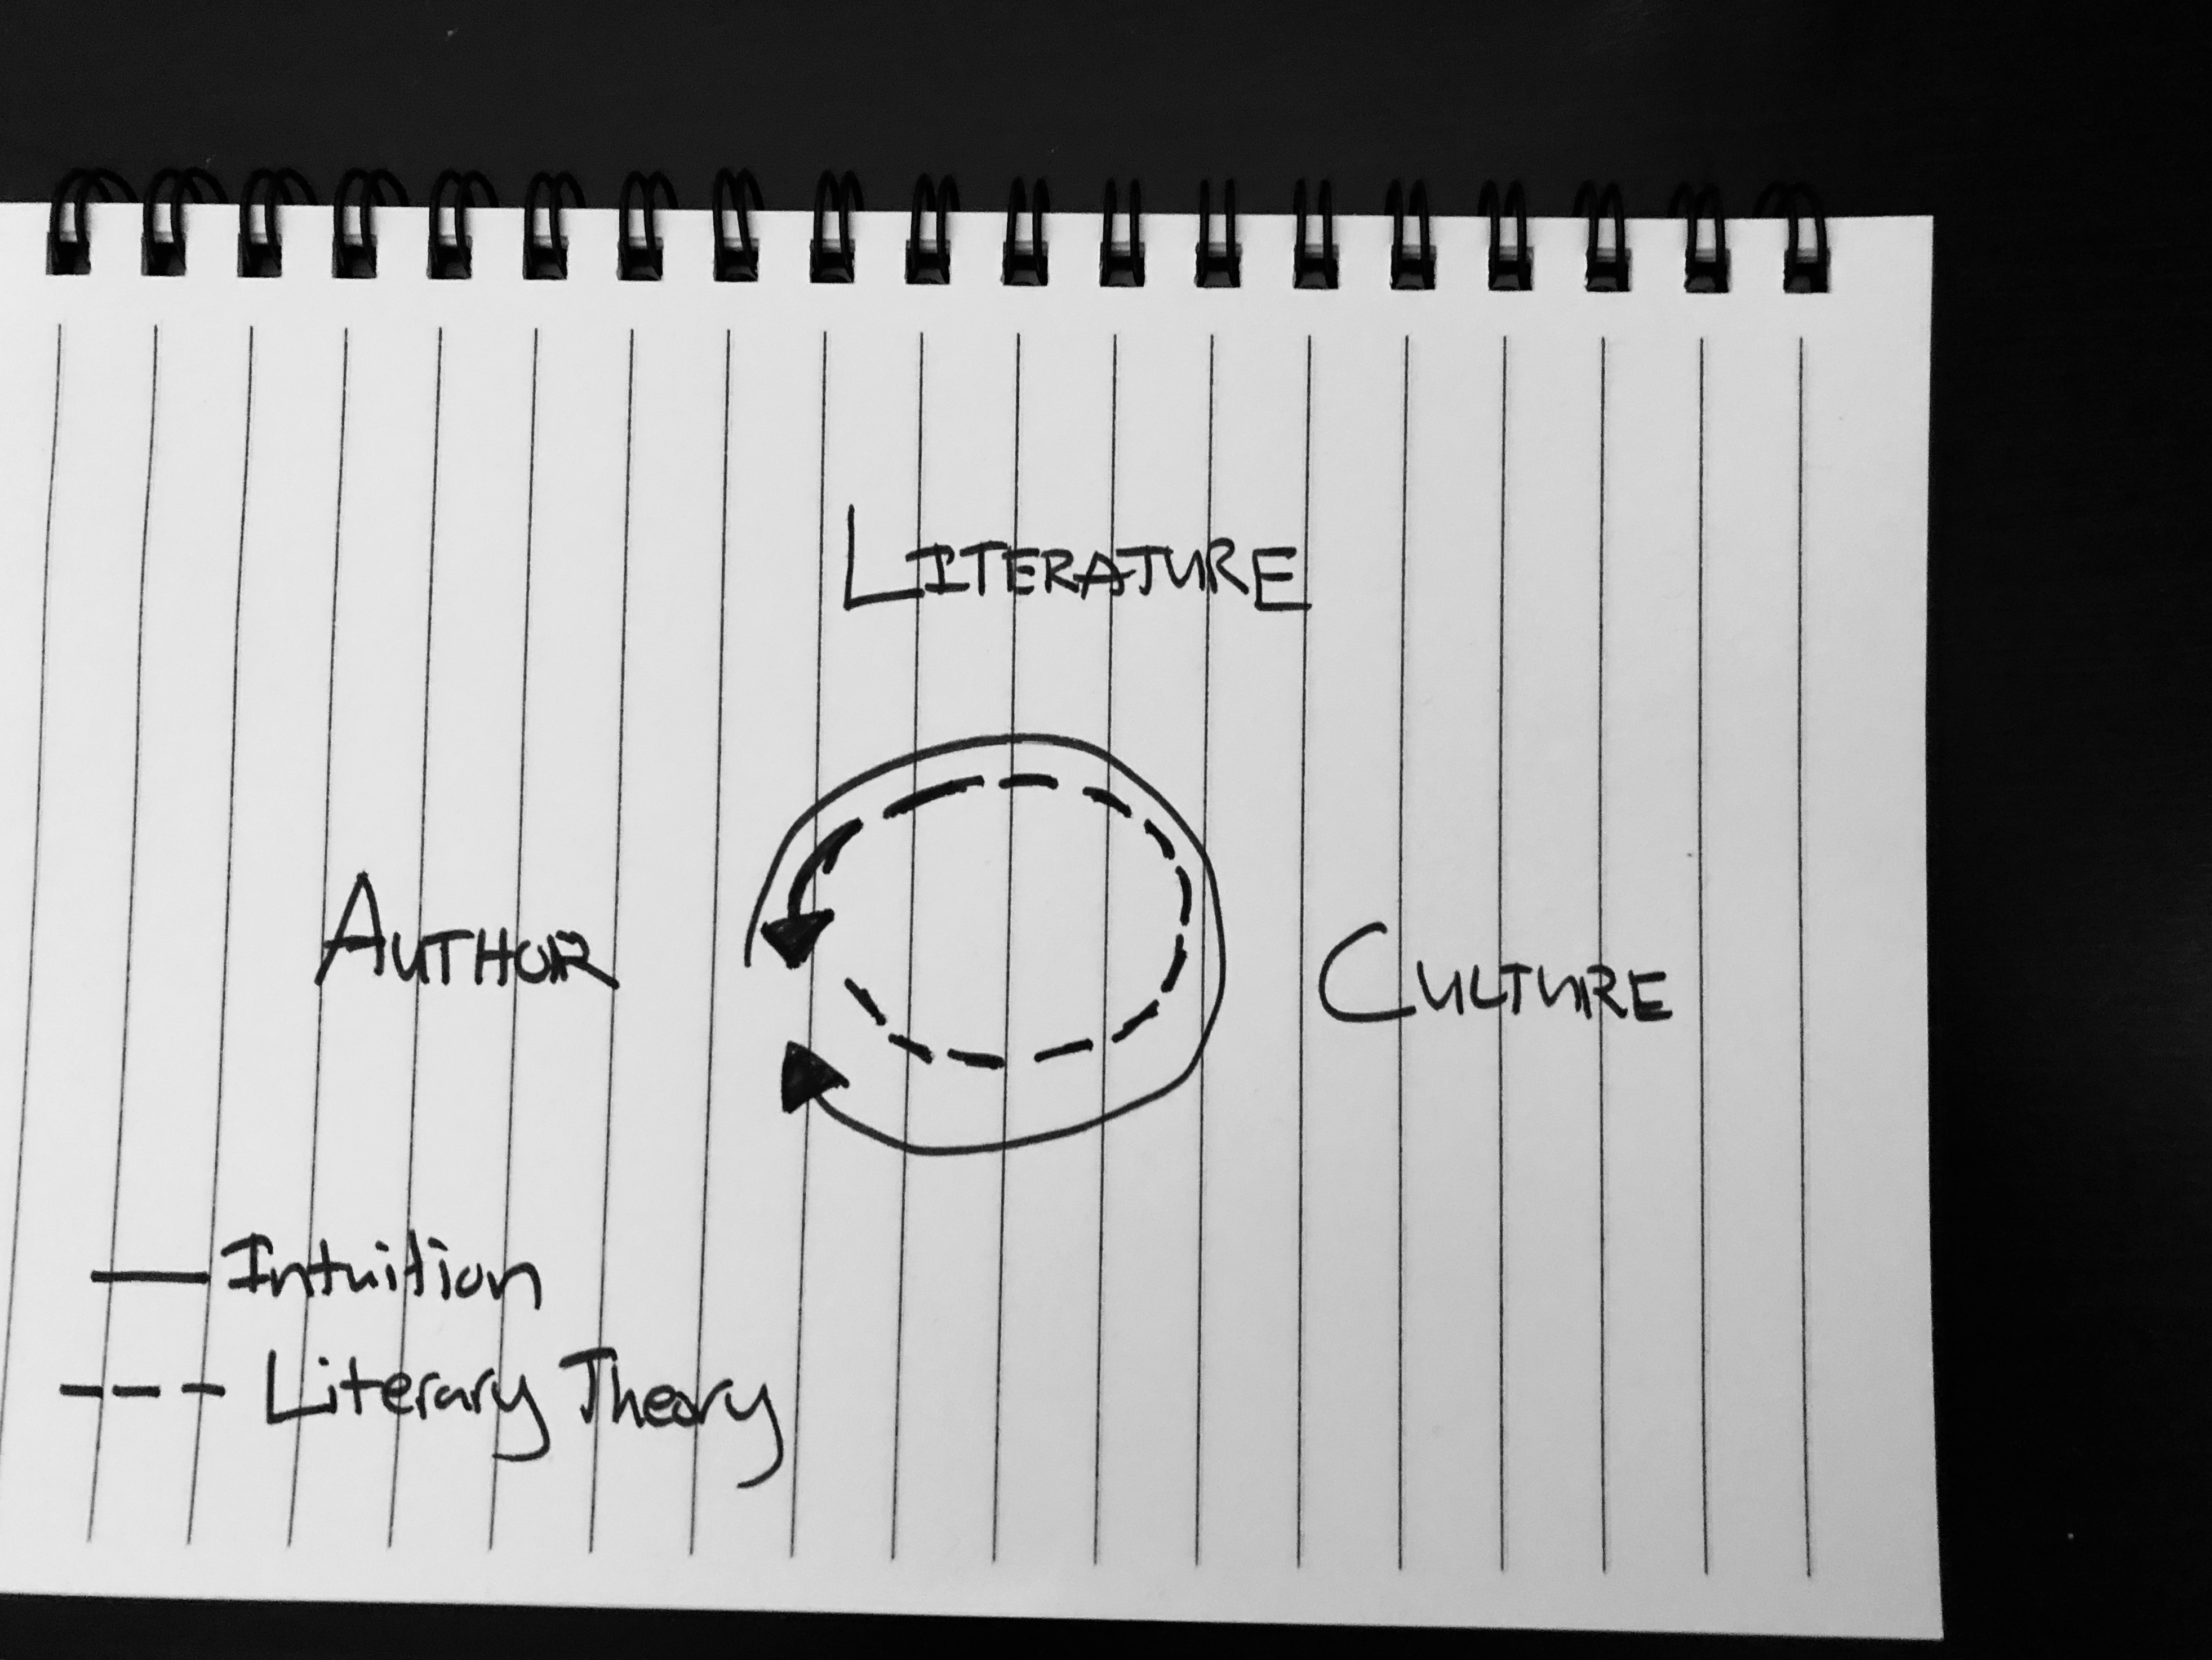 LITERATURE
AUTHOR
CULTURE
Intuition
Literary Theory